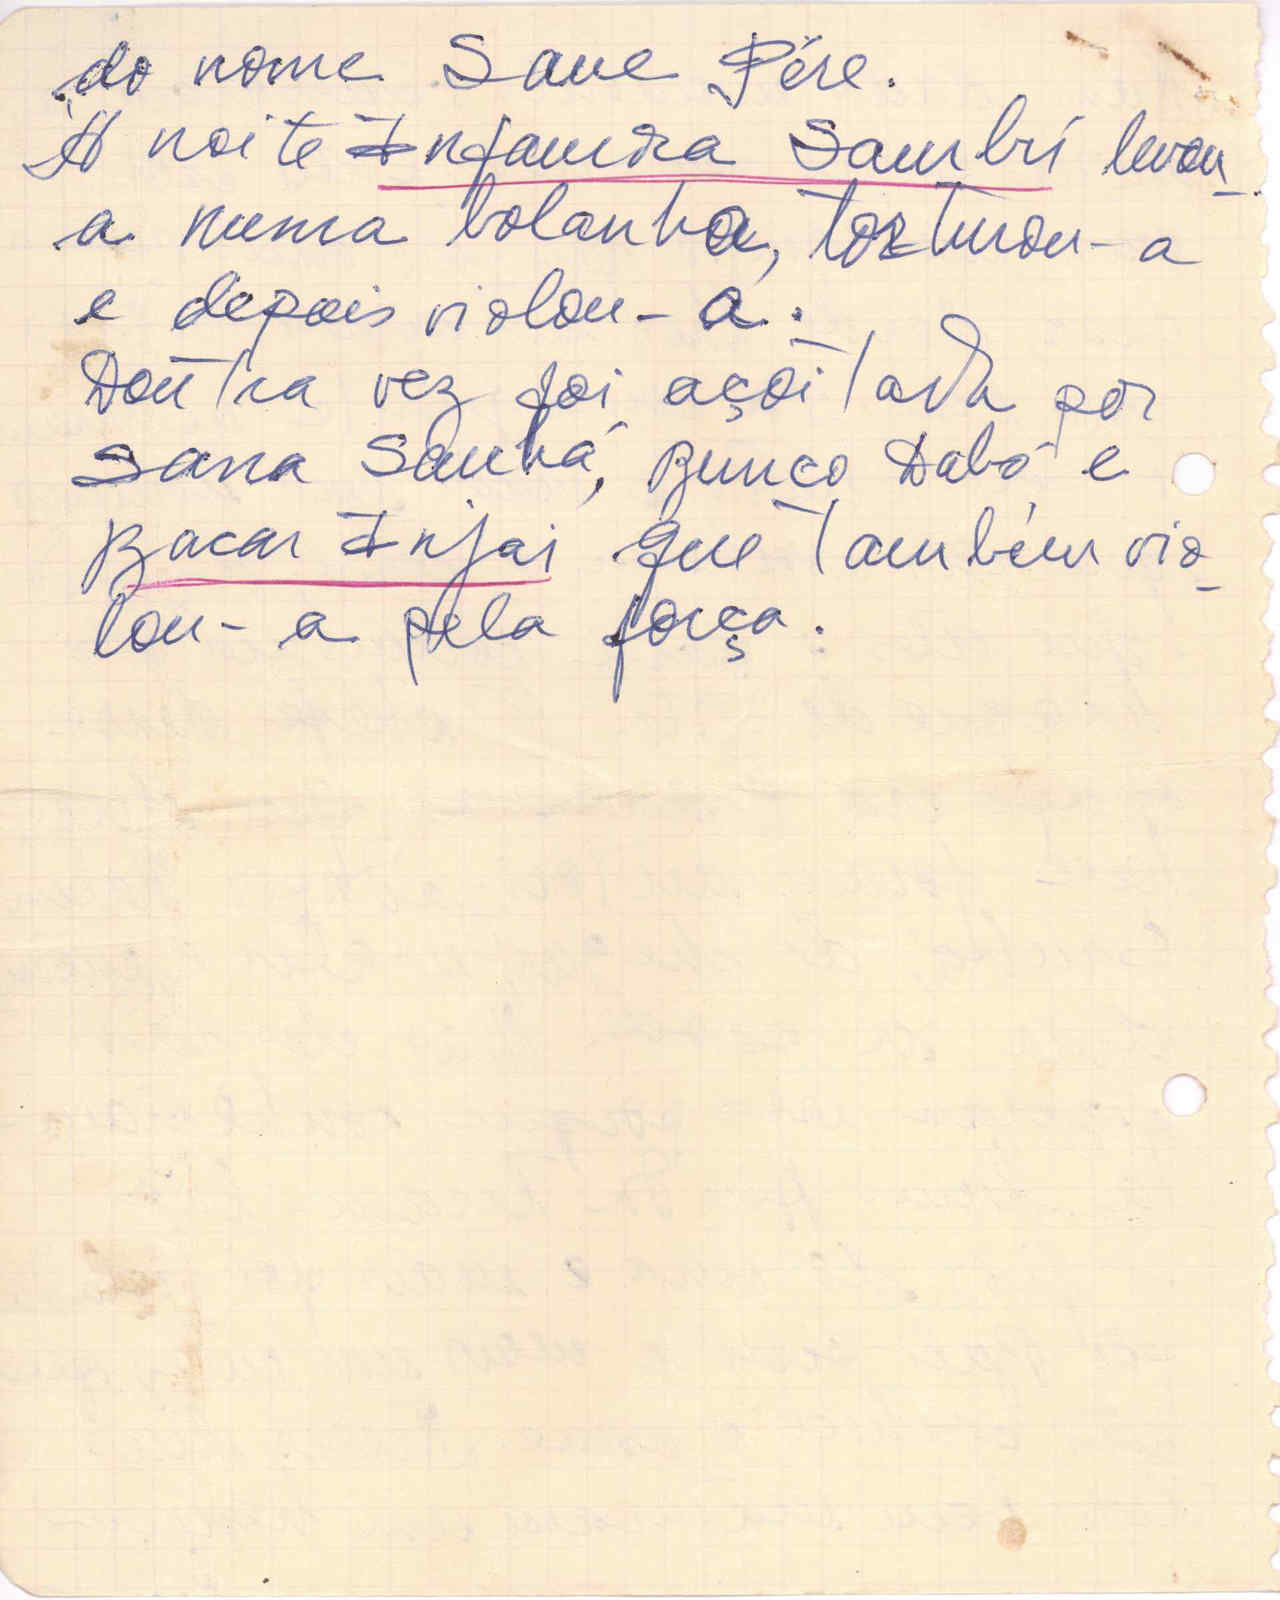 do nome Sane Pére.
À noite Infamara Sambú levou-
a numa bolanha, torturou-a
e depois violou-a.
Doutra vez foi açoitada por
Sana Sanhá, Bunco Dabó e
Bacar Injai que também vio-
lou-a pela força.